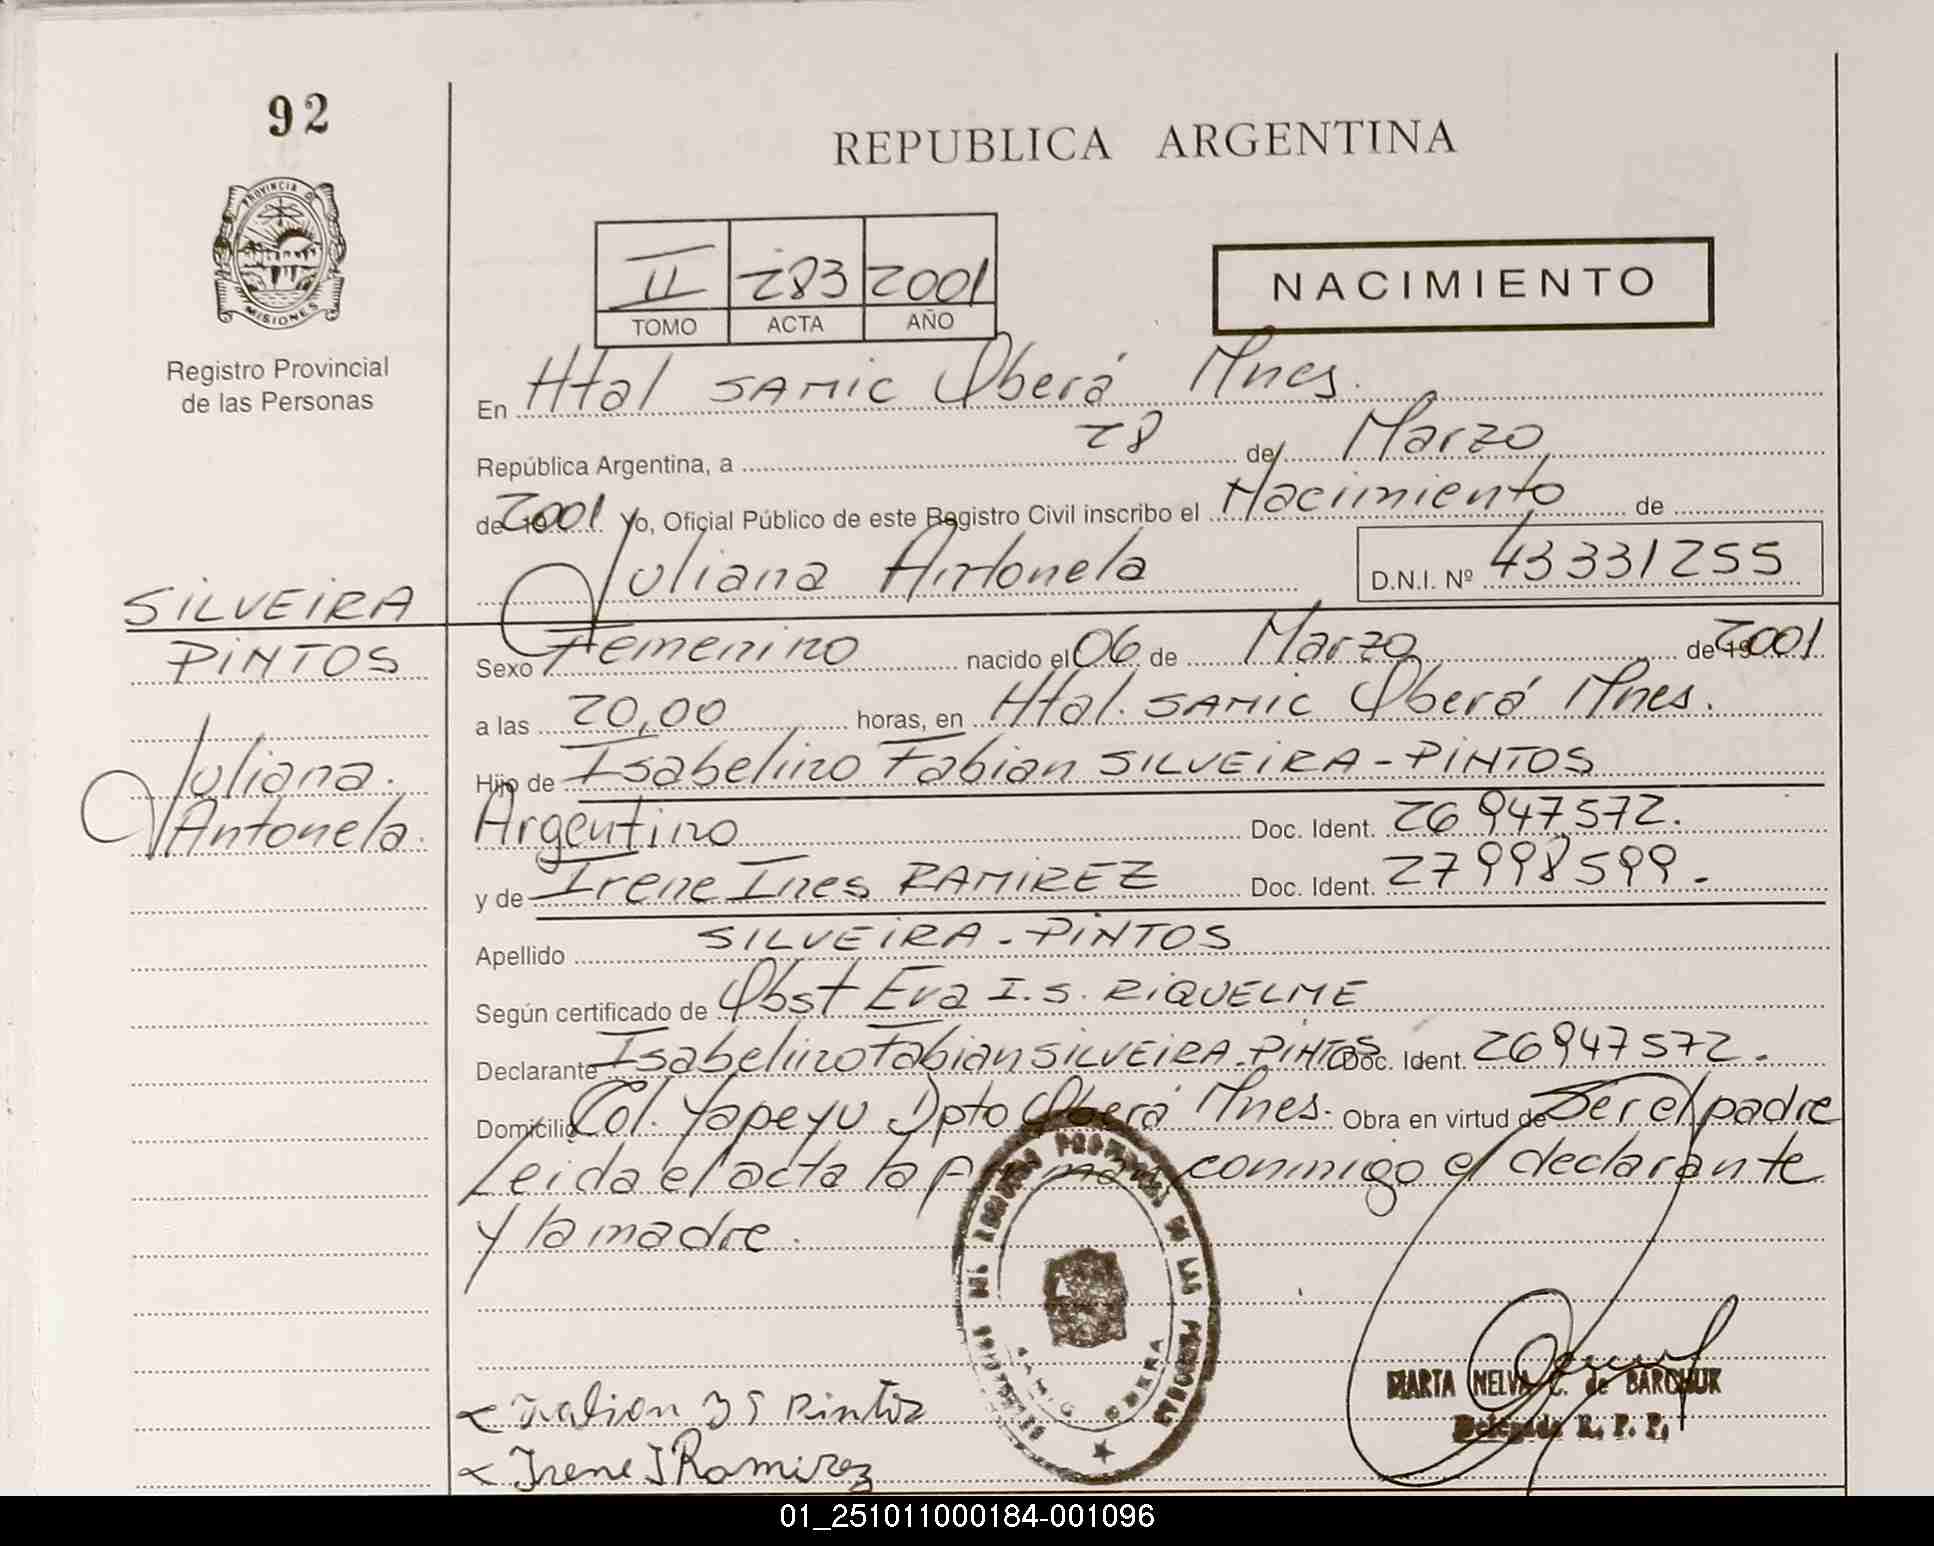 92
REPUBLICA ARGENTINA
PROVINCIA DE
MISIONES
Registro Provincial
de las Personas
II 283 2001
TOMO ACTA AÑO
NACIMIENTO
En Htal SAMIC Oberá Mnes.
República Argentina, a 28 de Marzo
de 2001 Yo, Oficial Público de este Registro Civil inscribo el Nacimiento de
Juliana Antonela D.N.I. Nº 43331255
SILVEIRA
PINTOS
Juliana.
Antonela.
Sexo Femenino nacido el 06 de Marzo de 2001
a las 20,00 horas, en Htal. SAMIC Oberá Mnes.
Hijo de Isabelino Fabian SILVEIRA-PINTOS
Argentino Doc. Ident. 26947572.
y de Irene Ines RAMIREZ Doc. Ident. 27998599.
Apellido SILVEIRA-PINTOS
Según certificado de Obst Eva I.S. RIQUELME
Declarante Isabelino Fabian SILVEIRA-PINTOS Doc. Ident. 26947572.
Domicilio Col. Yapeyu Dpto Oberá Mnes. Obra en virtud de Ser el padre
Leida el acta la firman conmigo el declarante
y la madre.
REGISTRO PROVINCIAL DE LAS PERSONAS
SAMIC OBERA
MARTA NELVA C. de BARCHUK
Delegada R. P. P.
Pintos
Irene I Ramirez
01_251011000184-001096